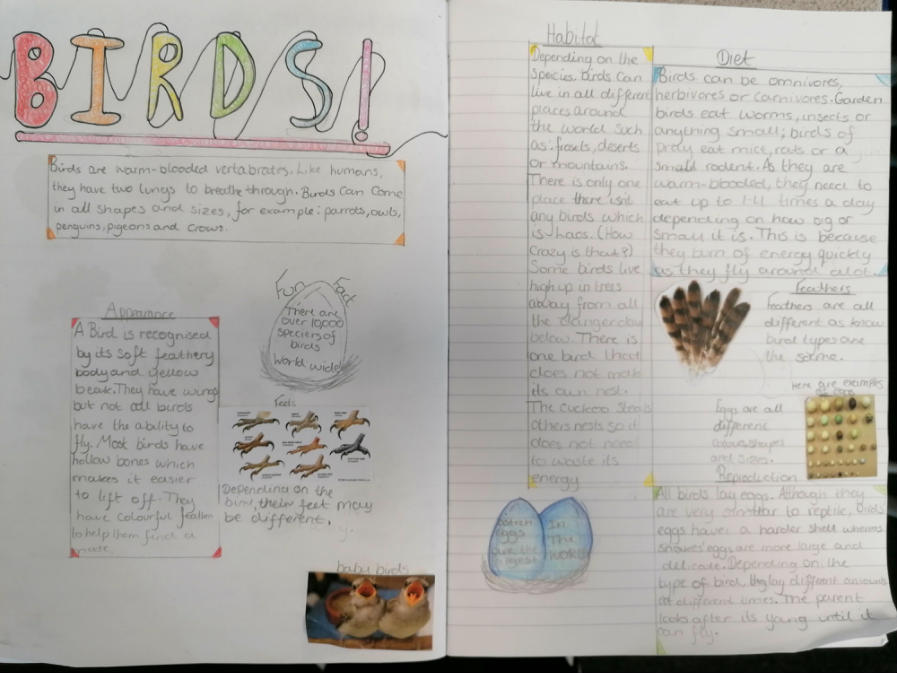 BIRDS!
Birds are warm-blooded vertabrates. Like humans,
they have two lungs to breathe through. Birds can come
in all shapes and sizes, for example: parrots, owls,
penguins, pigeons and crows.
Appearance
A Bird is recognised
by its soft feathery
body and yellow
beak. They have wings
but not all birds
have the ability to
fly. Most birds have
hollow bones which
makes it easier
to lift off. They
have colourful feathers
to help them find a
mate.
Fun Fact
There are
over 10,000
speciers of
birds
world wide!
Feets
Depending on the
bird, their feet may
be different.
baby birds
Habitat
Depending on the
species. birds can
live in all different
places around
the world such
as: forests, deserts
or mountains.
There is only one
place there isnt
any birds which
is haos. (How
crazy is that?)
Some birds live
high up in trees
away from all
the danger
below. There is
one bird that
does not make
its own nest.
The cuckoo steals
others nests so it
does not need
to waste its
energy
eggs
are the
biggest
In
The
world
Diet
Birds can be omnivores,
herbivores or carnivores. Garden
birds eat worms, insects or
anything small; birds of
prey eat mice, rats or a
small rodent. As they are
warm-blooded, they need to
eat up to times a day
depending on how big or
small it is. This is because
they burn of energy quickly
as they fly around alot.
Feathers
Feathers are all
different as
bird types are
the same.
here are examples
Eggs are all
different
colours, shapes
and sizes.
Reproduction
All birds lay eggs. Although they
are very similar to reptile, Birds
eggs have a harder shell whereas
snakes' eggs are more large and
delicate. Depending on the
type of bird, they lay different amounts
at different times. The parent
looks after its yung until it
can fly.